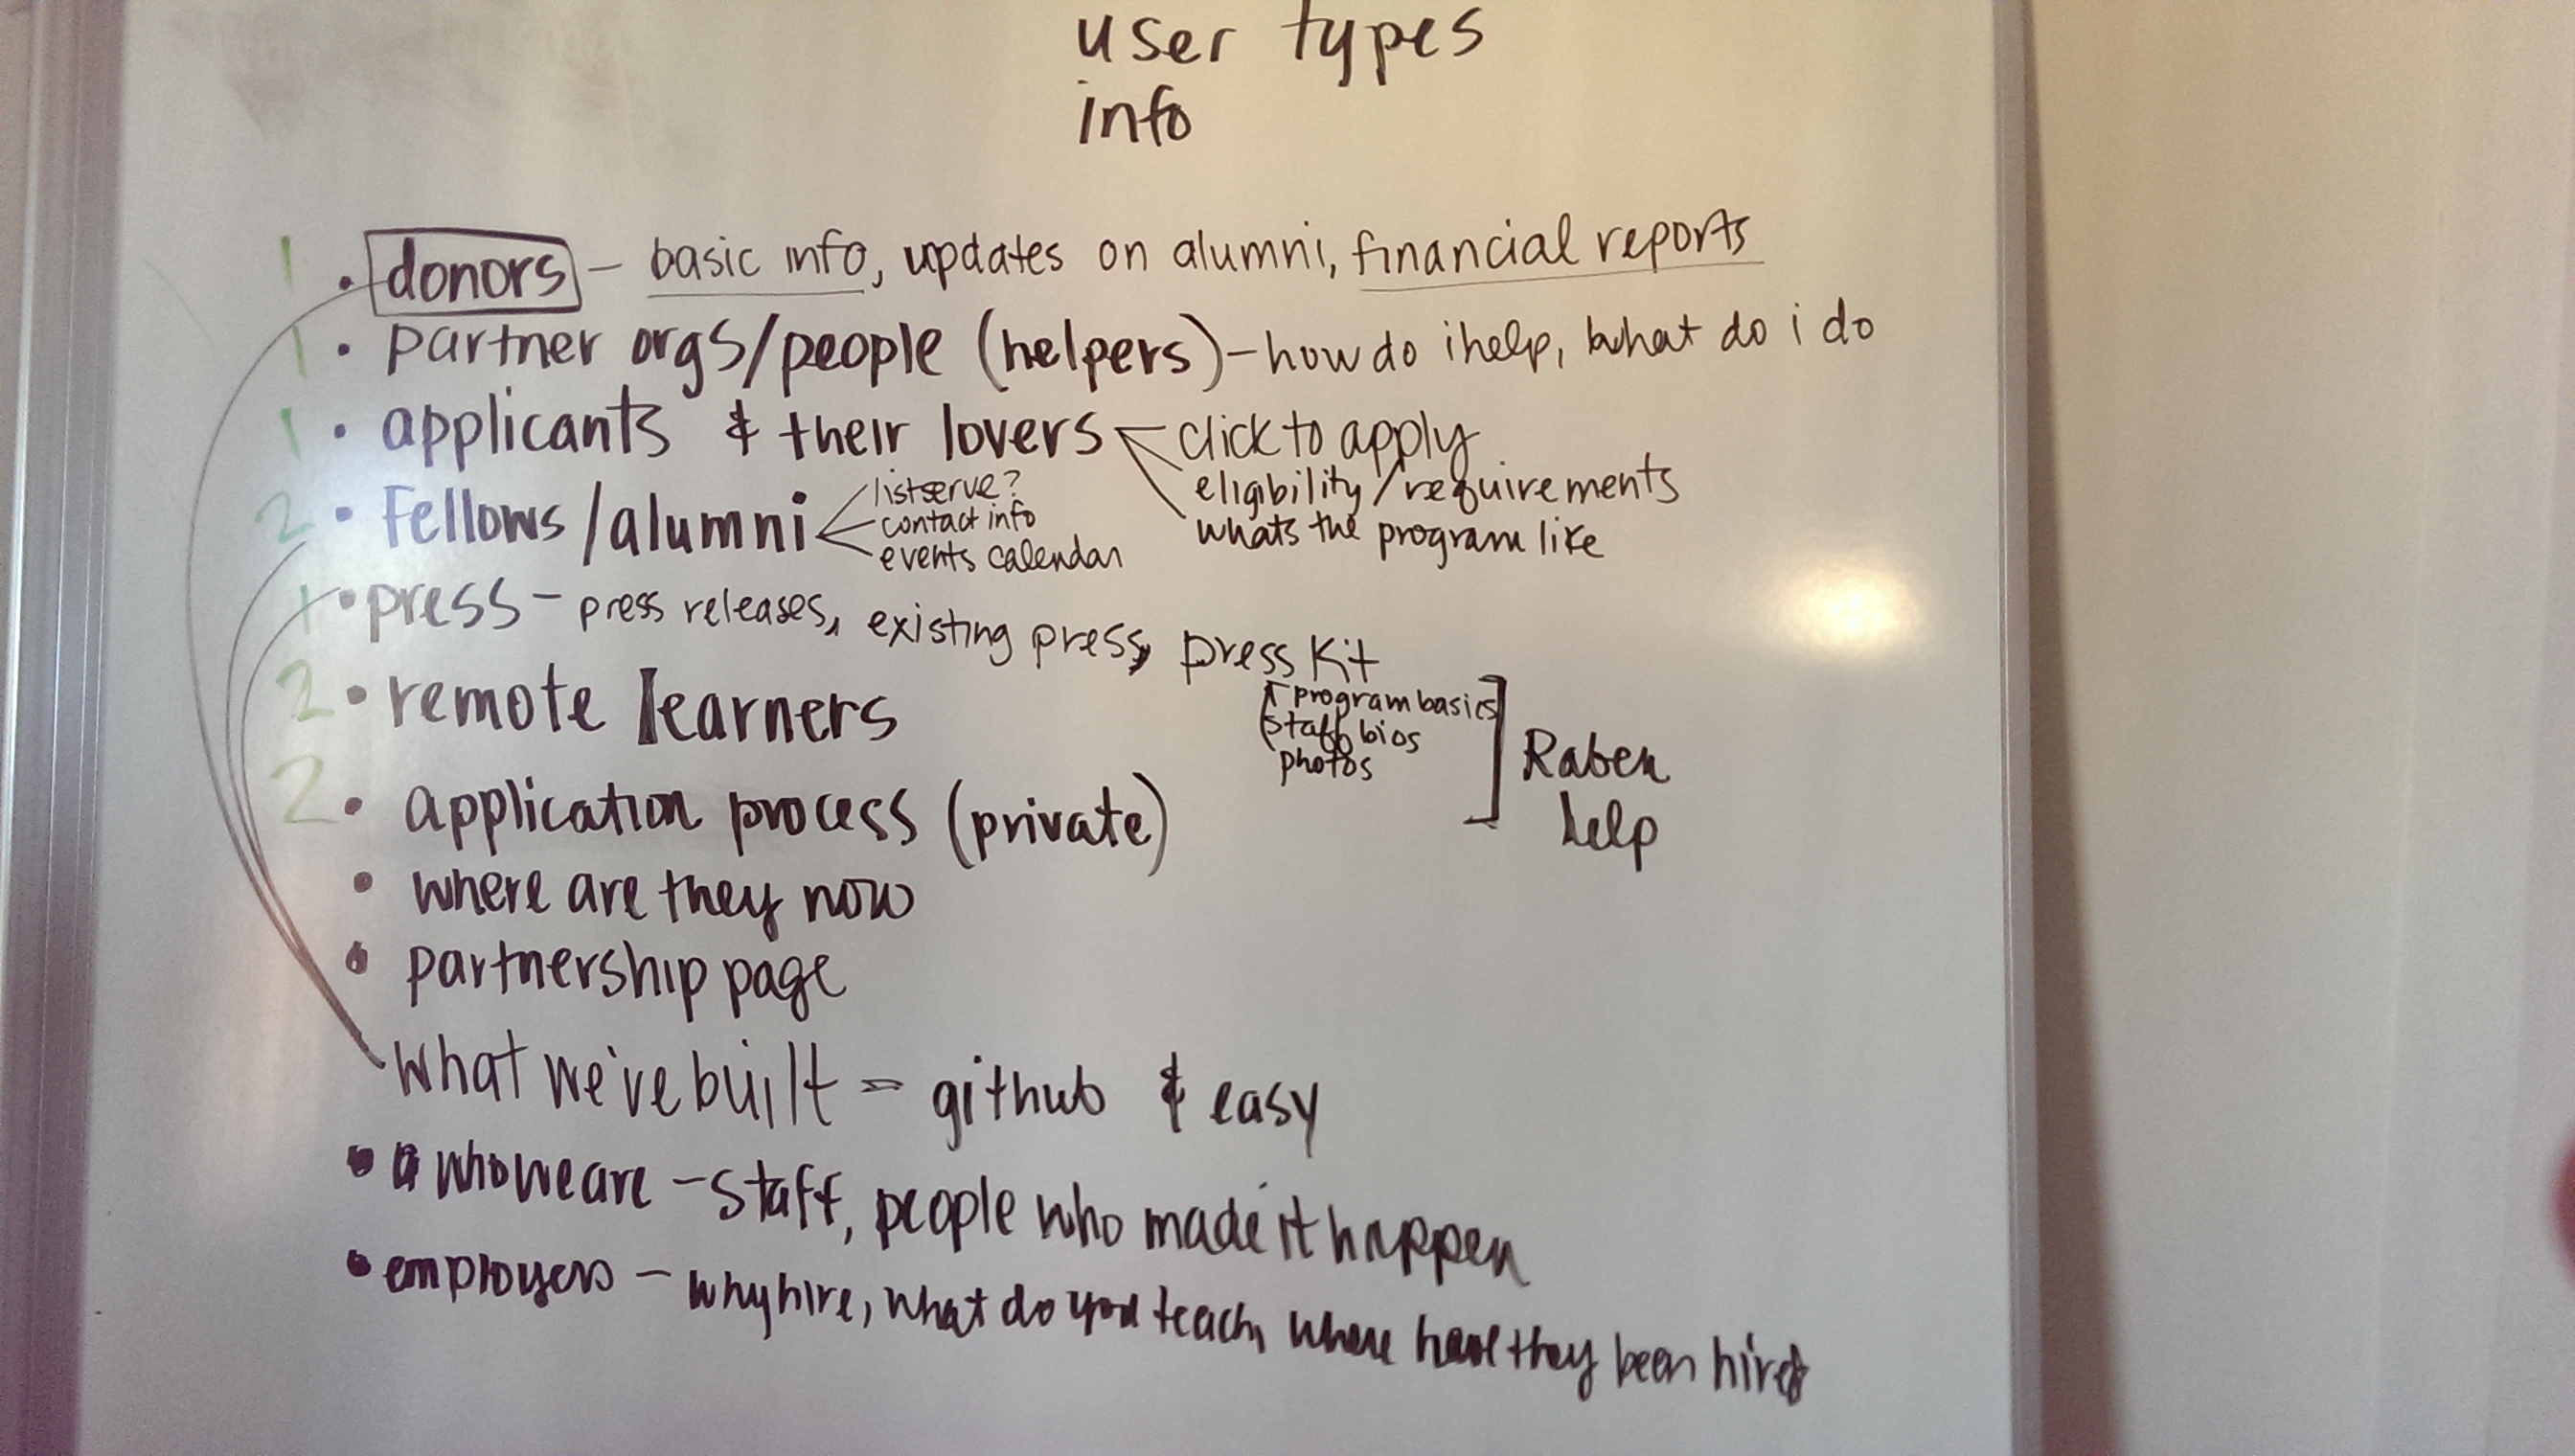 user types
info
1 • donors – basic info, updates on alumni, financial reports
1 • partner orgs/people (helpers) – how do i help, what do i do
1 • applicants & their lovers click to apply
eligibility/requirements
whats the program like
2 • Fellows/alumni listserve?
contact info
events calendar
1 • press – press releases, existing press, press kit
program basics
staff bios
photos
Raben
help
2 • remote learners
2 • application process (private)
• where are they now
• partnership page
what we've built = github & easy
• who we are – staff, people who made it happen
• employers – why hire, what do you teach, where have they been hired